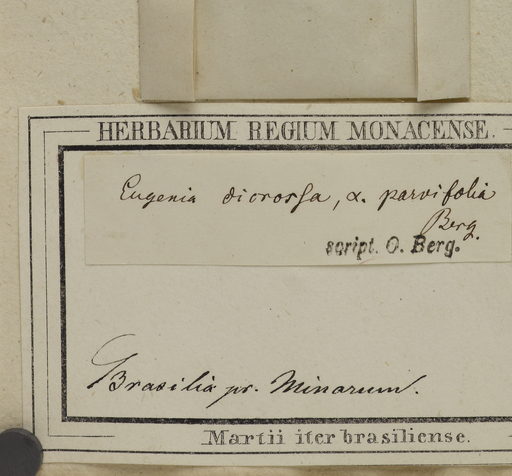 HERBARIUM REGIUM MONACENSE.
Eugenia dicrossa, α. parvifolia
Berg.
script. O. Berg.
Brasilia pr. Minarum.
Martii iter brasiliense.